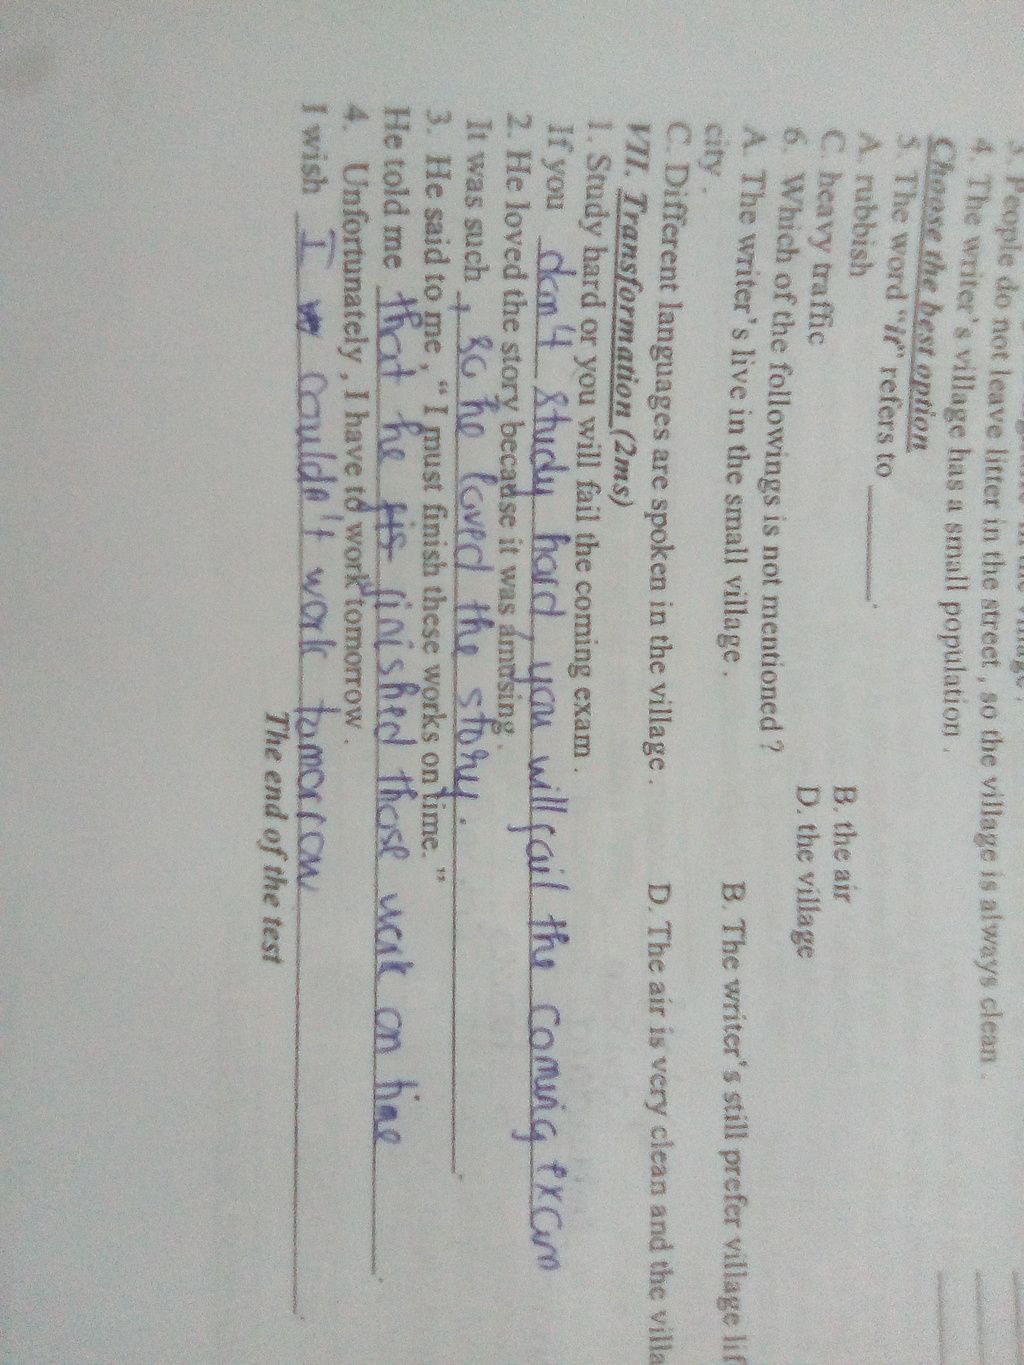 3. People do not
4. The writer's village has a small population .
leave litter in the street , so the village is always clean .
Choose the best option
5. The word "it" refers to ________.
A. rubbish B. the air
C. heavy traffic D. the village
6. Which of the followings is not mentioned ?
A. The writer's live in the small village . B. The writer's still prefer village lif
city .
C. Different languages are spoken in the village . D. The air is very clean and the villa
VII. Transformation (2ms)
1. Study hard or you will fail the coming exam .
If you don't study hard, you will fail the coming exam
2. He loved the story because it was amusing .
It was such so he loved the story .
3. He said to me , " I must finish these works on time. "
He told me that he finished those work on time .
4. Unfortunately , I have to work tomorrow .
I wish I couldn't work tomorrow .
The end of the test